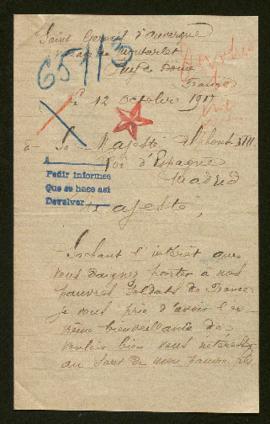 Saint Gervais d'Auvergne
Puy de Dôme
France
65113
le 12 octobre 1917
à Sa Majesté Alphonse XIII
Roi d'Espagne
Madrid
A
Pedir informes
Que se hace así
Devolver
Majesté,
Sachant l'intérêt que
vous daignez porter à nos
pauvres soldats de France
je vous prie d'avoir l'ex-
trême bienveillance de
vouloir bien vous intéresser
au sort de mon pauvre